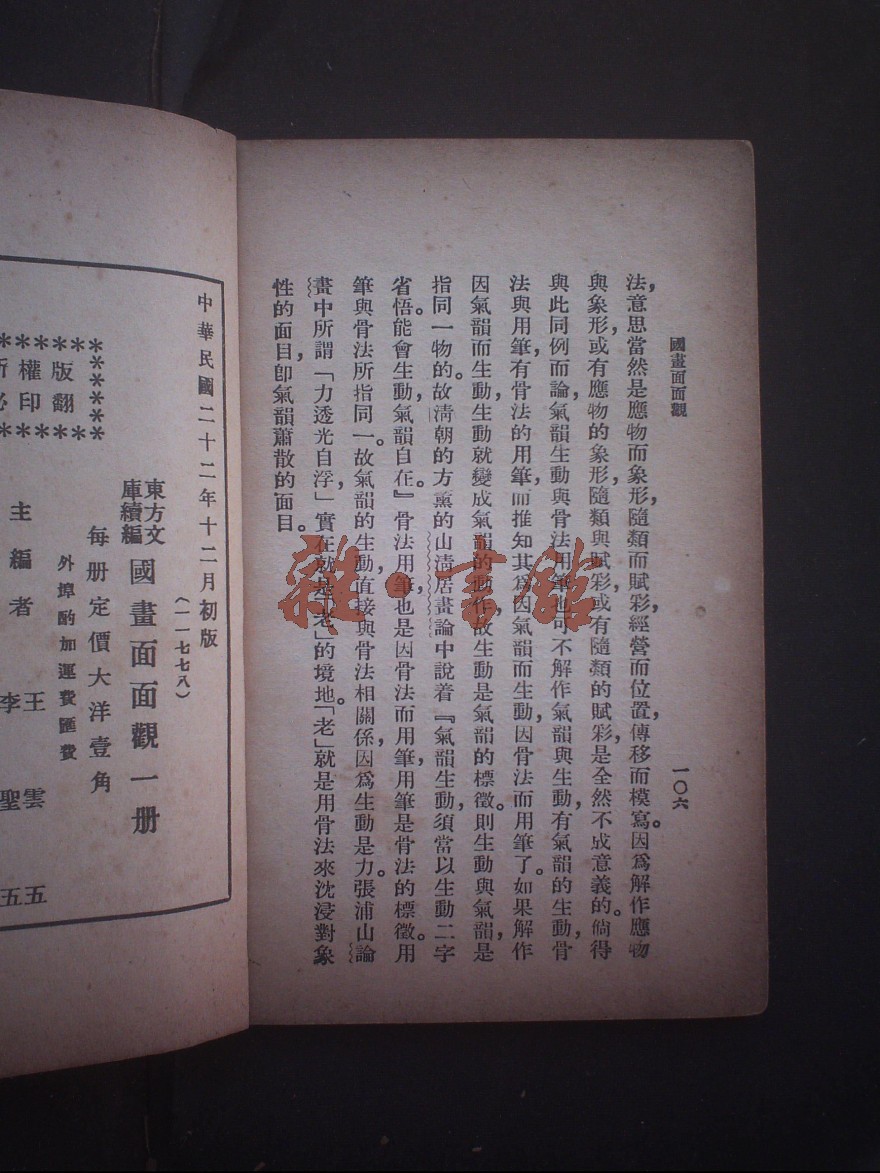 國畫面面觀
一〇六
法，意思當然是應物而象形，隨類而賦彩，經營而位置，傳移而模寫。因爲解作應物
與象形，或有應物的象形，隨類與賦彩，或有隨類的賦彩，是全然不成意義的。倘得
與此同例而論，氣韻生動與骨法用筆也可不解作氣韻與生動，有氣韻的生動，骨
法與用筆，有骨法的用筆，而推知其爲因氣韻而生動，因骨法而用筆了。如果解作
因氣韻而生動，生動就變成氣韻的動作，故生動是氣韻的標徵。則生動與氣韻，是
指同一物的。故清朝的方薰的山靜居畫論中說着『氣韻生動，須當以生動二字
省悟。能會生動，氣韻自在。』骨法用筆，也是因骨法而用筆，用筆是骨法的標徵。用
筆與骨法所指同一。故氣韻的生動，直接與骨法相關係，因爲生動是力。張浦山論
畫中所謂「力透光自浮」，實在就是「老」的境地。「老」就是用骨法來沈浸對象
性的面目，卽氣韻蕭散的面目。
中華民國二十二年十二月初版
（一一七七八）
東方文
庫續編
國畫面面觀一册
每册定價大洋壹角
外埠酌加運費匯費
版權
翻印
主編者
王雲五
李聖五
雜·書館